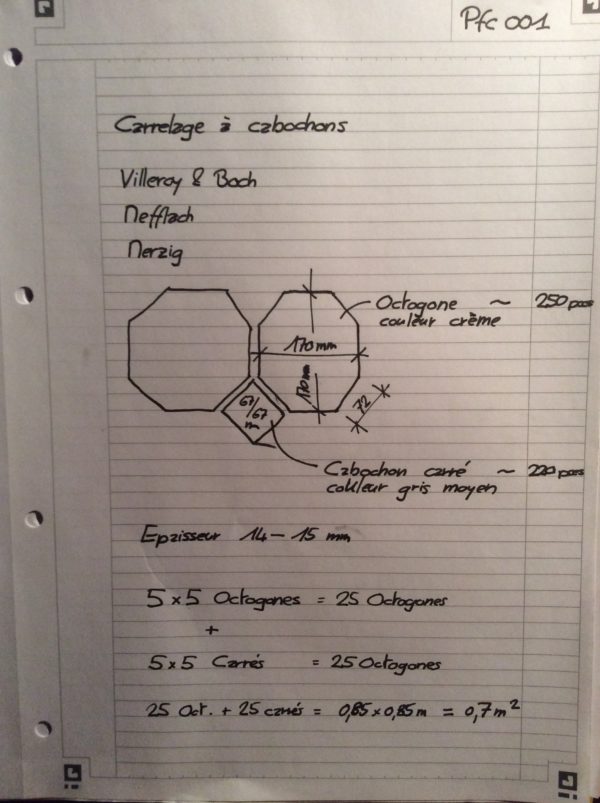 Pfc 001
Carrelage à cabochons
Villeroy & Boch
Mettlach
Merzig
Octogone ~ 250 pces
couleur crème
170 mm
170 mm
67/67
72
Cabochon carré ~ 220 pces
couleur gris moyen
Epaisseur 14 – 15 mm
5 x 5 Octogones = 25 Octogones
+
5 x 5 Carrés = 25 Octogones
25 Oct. + 25 carrés = 0,85 x 0,85 m = 0,7 m²